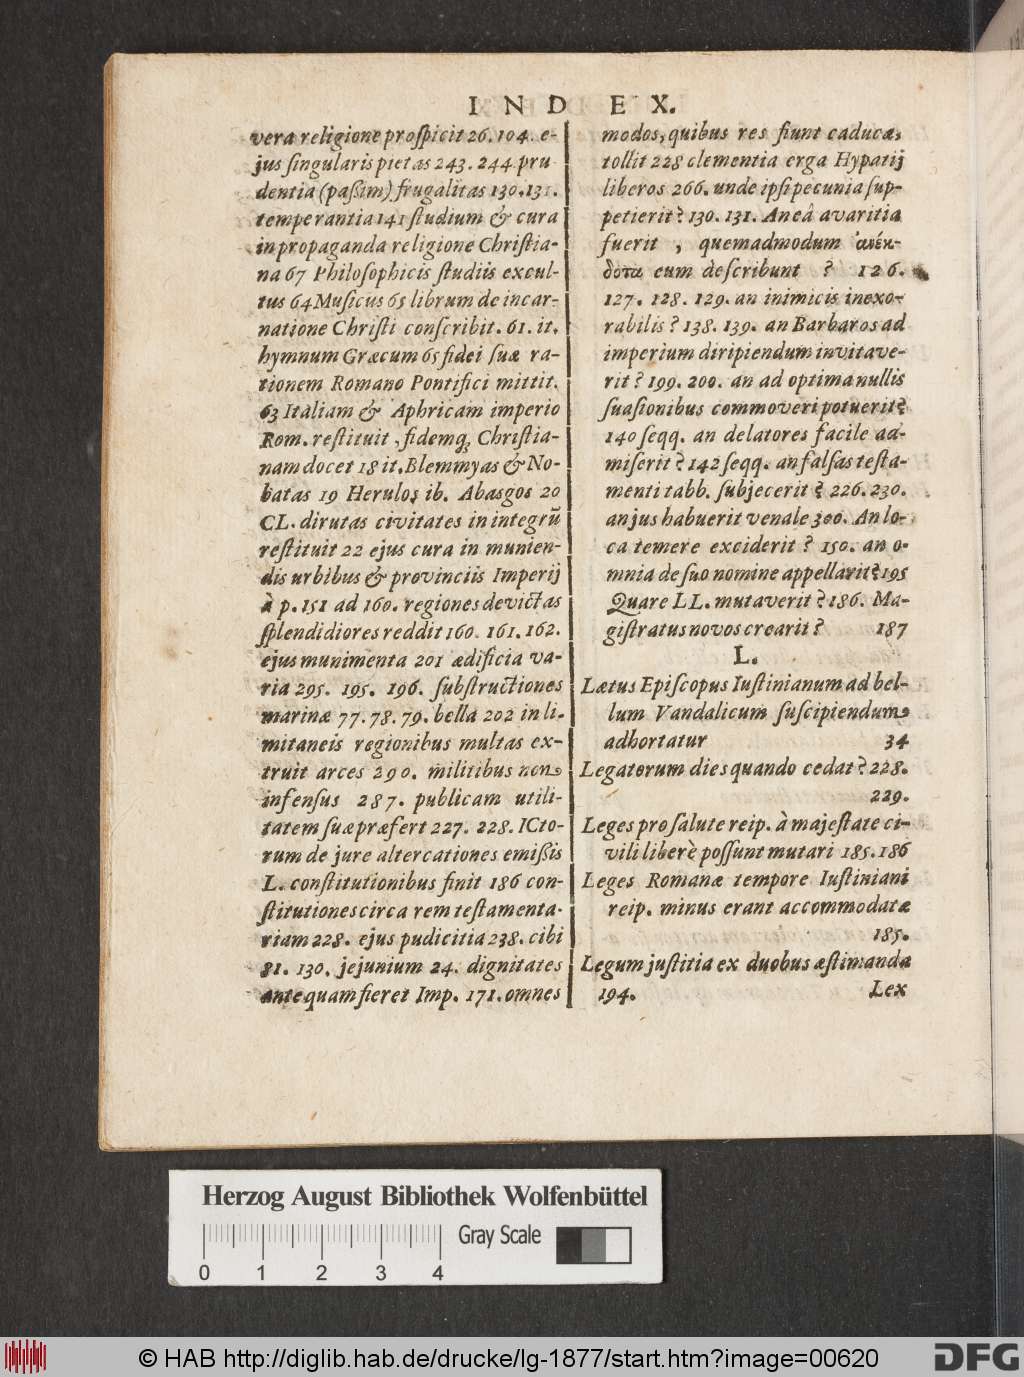 INDEX.
vera religione proſpicit 26. 104. e-
jus ſingularis pietas 243. 244 pru
dentia (paßim) frugalitas 130. 131.
temperantia 141 ſtudium & cura
in propaganda religione Chriſtia-
na 67 Philoſophicis ſtudiis excul-
tus 64 Muſicus 65 librum de incar-
natione Chriſti conſcribit. 61. it.
hymnum Græcum 65 fidei ſuæ ra-
tionem Romano Pontifici mittit.
63 Italiam & Aphricam imperio
Rom. reſtituit, fidemq; Chriſtia-
nam docet 18 it. Blemmyas & No-
batas 19 Herulos ib. Abasgos 20
CL. dirutas civitates in integrū
reſtituit 22 ejus cura in munien-
dis urbibus & provinciis Imperij
à p. 151 ad 160. regiones devictas
ſplendidiores reddit 160. 161. 162.
ejus munimenta 201 ædificia va-
ria 295. 195. 196. ſubſtructiones
marinæ 77. 78. 79. bella 202 in li-
mitaneis regionibus multas ex-
truit arces 290. militibus non
infenſus 287. publicam utili-
tatem ſuæ præfert 227. 228. ICto-
rum de jure altercationes emißis
L. conſtitutionibus finit 186 con-
ſtitutiones circa rem teſtamenta-
riam 228. ejus pudicitia 238. cibi
81. 130. jejunium 24. dignitates
antequam fieret Imp. 171. omnes
modos, quibus res fiunt caducæ,
tollit 228 clementia erga Hypatij
liberos 266. unde ipſi pecunia ſup-
petierit? 130. 131. An eâ avaritia
fuerit, quemadmodum ἀνέκ-
δοτα eum deſcribunt? 126.
127. 128. 129. an inimicis inexo-
rabilis? 138. 139. an Barbaros ad
imperium diripiendum invitave-
rit? 199. 200. an ad optima nullis
ſuaſionibus commoveri potuerit?
140 ſeqq. an delatores facile ad-
miſerit? 142 ſeqq. an falſas teſta-
menti tabb. ſubjecerit? 226. 230.
an jus habuerit venale 300. An lo-
ca temere exciderit? 150. an o-
mnia de ſuo nomine appellarit? 195
Quare LL. mutaverit? 186. Ma-
giſtratus novos crearit? 187
L.
Lætus Epiſcopus Iuſtinianum ad bel-
lum Vandalicum ſuſcipiendum
adhortatur 34
Legatorum dies quando cedat? 228.
229.
Leges pro ſalute reip. à majeſtate ci-
vili liberè poſſunt mutari 185. 186
Leges Romanæ tempore Iuſtiniani
reip. minus erant accommodatæ
185.
Legum juſtitia ex duobus æſtimanda
194. Lex
Herzog August Bibliothek Wolfenbüttel
Gray Scale
0 1 2 3 4
© HAB http://diglib.hab.de/drucke/lg-1877/start.htm?image=00620
DFG